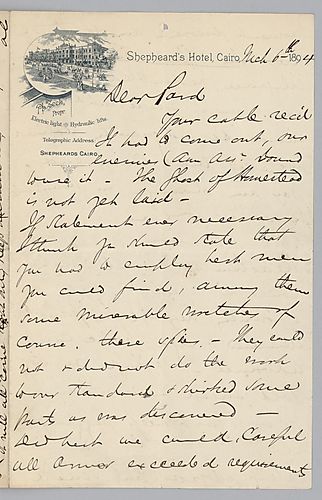 Shepheard's Hotel, Cairo, Mch 6th 1894
Electric light Hydraulic lifts
Telegraphic Address
SHEPHEARDS CAIRO
Dear Pard
Your cable rec'd
It had to come out, our
enemies bound
to use it. The Ghost of Homestead
is not yet laid –
If statement ever necessary
I think you should state that
you had to employ best men
you could find, among them
some miserable wretches of
course. these spies – They could
not & did not do the work
to our standard & shirked some
parts as was discovered –
Did best we could. Careful
all armor exceeded requirements